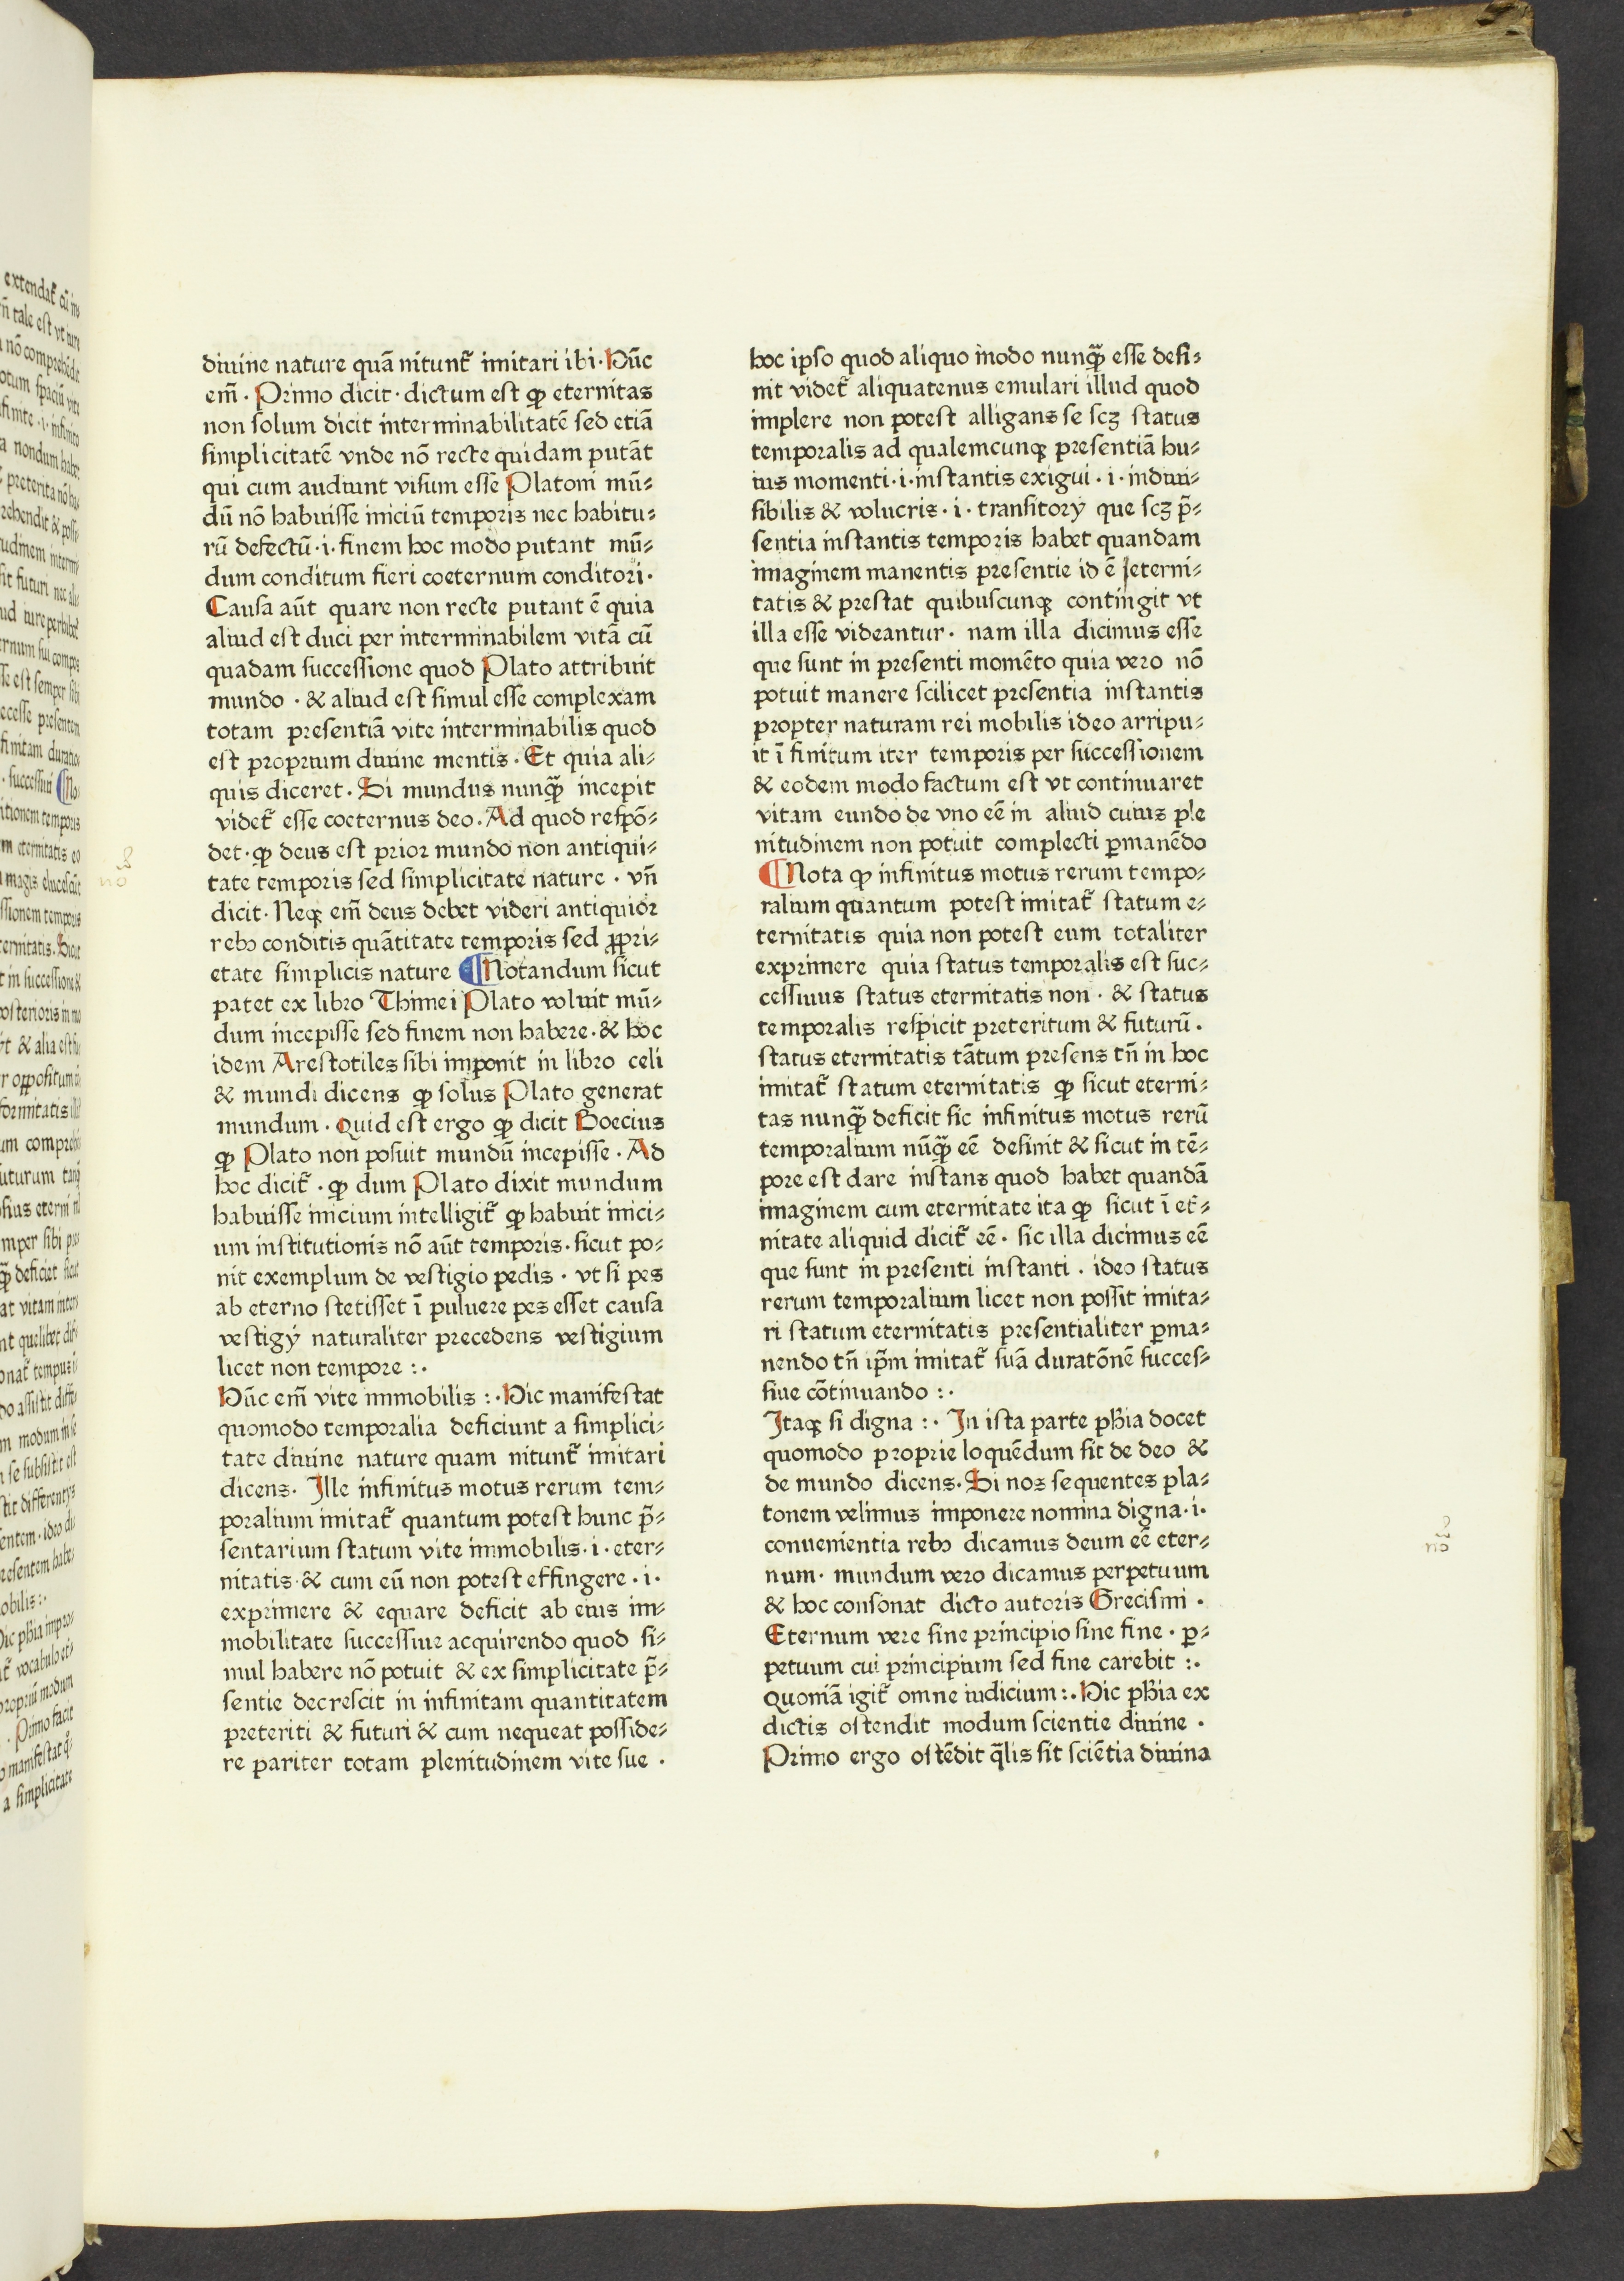 diuine nature quā nitunt᷑ imitari ibi · Hūc
em̄ · Primo dicit · dictum est ꝙ eternitas
non solum dicit interminabilitatē sed etiā
simplicitatē vnde nō recte quidam putāt
qui cum audiunt visum esse Platoni mū⸗
dū nō habuisse iniciū temporis nec habitu⸗
rū defectū · i · finem hoc modo putant mū⸗
dum conditum fieri coeternum conditori ·
Causa aūt quare non recte putant ē quia
aliud est duci per interminabilem vitā cū
quadam successione quod Plato attribuit
mundo · & aliud est simul esse complexam
totam presentiā vite interminabilis quod
est proprium diuine mentis · Et quia ali⸗
quis diceret · Si mundus nunꝙ̄ incepit
videt᷑ esse coeternus deo · Ad quod respō⸗
det · ꝙ deus est prior mundo non antiqui⸗
tate temporis sed simplicitate nature · vn̄
dicit · Neqꝫ em̄ deus debet videri antiquior
rebꝰ conditis quātitate temporis sed ꝓpri⸗
etate simplicis nature ¶ Notandum sicut
patet ex libro Thimei Plato voluit mū⸗
dum incepisse sed finem non habere · & hoc
idem Arestotiles sibi imponit in libro celi
& mundi dicens ꝙ solus Plato generat
mundum · Quid est ergo ꝙ dicit Boecius
ꝙ Plato non posuit mundū incepisse · Ad
hoc dicit᷑ · ꝙ dum Plato dixit mundum
habuisse inicium intelligit᷑ ꝙ habuit inici⸗
um institutionis nō aūt temporis · sicut po⸗
nit exemplum de vestigio pedis · vt si pes
ab eterno stetisset ī puluere pes esset causa
vestigÿ naturaliter precedens vestigium
licet non tempore : ·
Hūc em̄ vite immobilis : · Hic manifestat
quomodo temporalia deficiunt a simplici⸗
tate diuine nature quam nitunt᷑ imitari
dicens · Ille infinitus motus rerum tem⸗
poralium imitat᷑ quantum potest hunc p̄⸗
sentarium statum vite immobilis · i · eter⸗
nitatis · & cum eū non potest effingere · i ·
exprimere & equare deficit ab eius im⸗
mobilitate successiue acquirendo quod si⸗
mul habere nō potuit & ex simplicitate p̄⸗
sentie decrescit in infinitam quantitatem
preteriti & futuri & cum nequeat posside⸗
re pariter totam plenitudinem vite sue ·
hoc ipso quod aliquo modo nunꝙ̄ esse desi⸗
nit videt᷑ aliquatenus emulari illud quod
implere non potest alligans se scꝫ status
temporalis ad qualemcunqꝫ presentiā hu⸗
ius momenti · i · instantis exigui · i · indiui⸗
sibilis & volucris · i · transitorÿ que scꝫ p̄⸗
sentia instantis temporis habet quandam
imaginem manentis presentie id ē eterni⸗
tatis & prestat quibuscunqꝫ contingit vt
illa esse videantur · nam illa dicimus esse
que sunt in presenti momēto quia vero nō
potuit manere scilicet presentia instantis
propter naturam rei mobilis ideo arripu⸗
it ī finitum iter temporis per successionem
& eodem modo factum est vt continuaret
vitam eundo de vno eē in aliud cuius ple
nitudinem non potuit complecti ꝑmanēdo
¶ Nota ꝙ infinitus motus rerum tempo⸗
ralium quantum potest imitat᷑ statum e⸗
ternitatis quia non potest eum totaliter
exprimere quia status temporalis est suc⸗
cessiuus status eternitatis non · & status
temporalis respicit preteritum & futurū ·
status eternitatis tātum presens tn̄ in hoc
imitat᷑ statum eternitatis ꝙ sicut eterni⸗
tas nunꝙ̄ deficit sic infinitus motus rerū
temporalium nūꝙ̄ eē desinit & sicut in tē⸗
pore est dare instans quod habet quandā
imaginem cum eternitate ita ꝙ sicut ī et᷑⸗
nitate aliquid dicit᷑ eē · sic illa dicimus eē
que sunt in presenti instanti · ideo status
rerum temporalium licet non possit imita⸗
ri statum eternitatis presentialiter ꝑma⸗
nendo tn̄ ip̄m imitat᷑ suā duratōnē succes⸗
siue cōtinuando : ·
Itaqꝫ si digna : · In ista parte ph̄ia docet
quomodo proprie loquēdum sit de deo &
de mundo dicens · Si nos sequentes pla⸗
tonem velimus imponere nomina digna · i ·
conuenientia rebꝰ dicamus deum eē eter⸗
num · mundum vero dicamus perpetuum
& hoc consonat dicto autoris Grecismi ·
Eternum vere sine principio sine fine · ꝑ⸗
petuum cui principium sed fine carebit : ·
Quoniā igit᷑ omne iudicium : · Hic ph̄ia ex
dictis ostendit modum scientie diuine ·
Primo ergo ostēdit q̄lis sit sciētia diuina